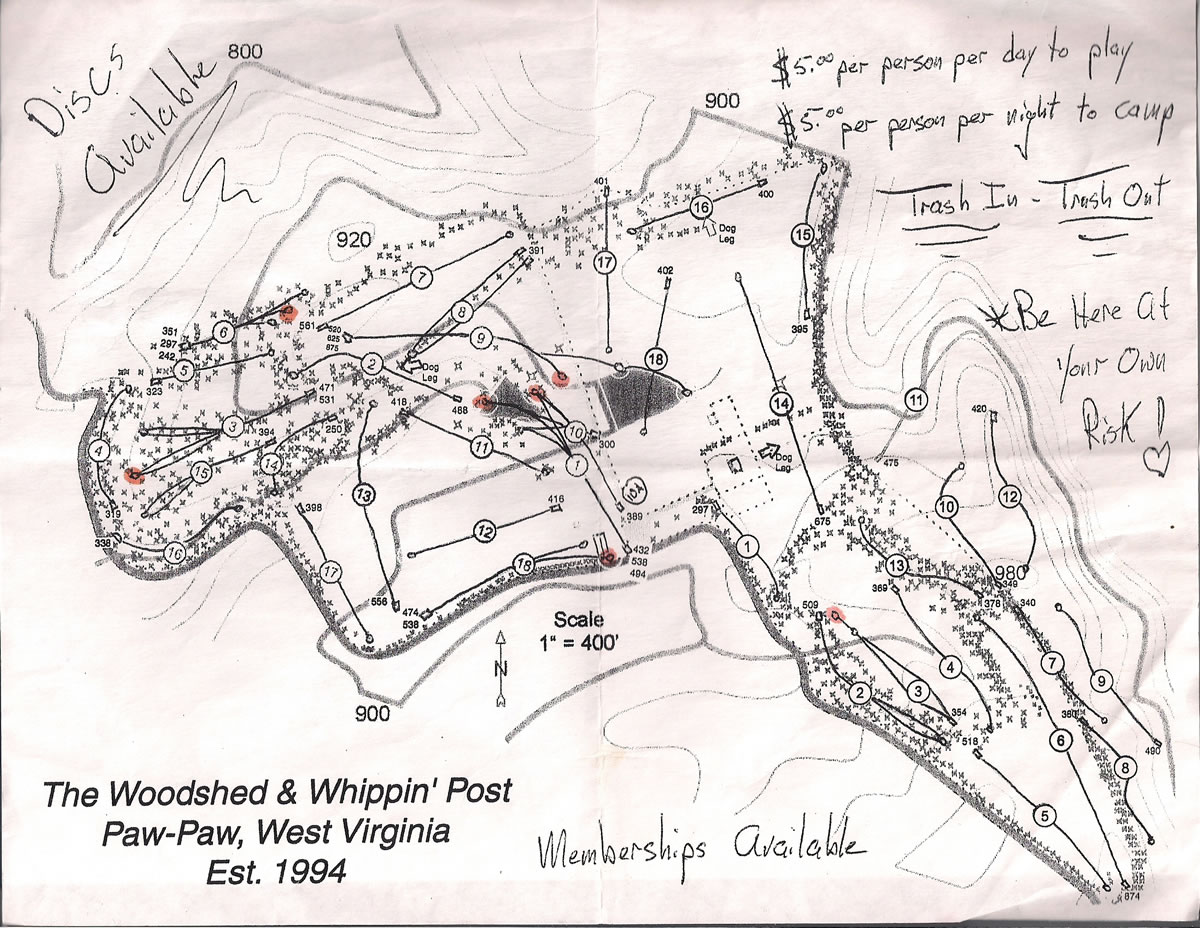 Discs
Available
800
900
$5.00 per person per day to play
$5.00 per person per night to camp
Trash In - Trash Out
* Be Here At
Your Own
Risk!
920
401
16
400
Dog
Leg
15
391
17
402
7
8
395
561
520
625
675
9
18
6
351
297
242
5
323
2
Dog
Leg
14
11
420
471
531
488
418
3
394
250
10
300
11
1
Dog
Leg
475
4
15
14
13
10A
389
297
675
10
12
319
338
398
416
16
12
1
432
538
494
13
980
349
17
18
369
378
340
556
474
538
509
Scale
1" = 400'
N
4
7
9
2
3
354
380
900
518
6
490
8
5
674
The Woodshed & Whippin' Post
Paw-Paw, West Virginia
Est. 1994
Memberships Available